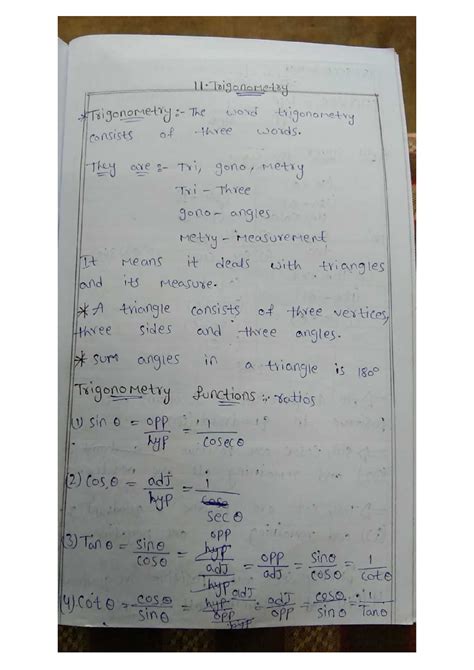 11. Trigonometry
* Trigonometry :- The word trigonometry
consists of three words.
They are :- Tri, gono, Metry
Tri - Three
gono - angles
Metry - Measurement
It Means it deals with triangles
and its Measure.
* A triangle consists of three vertices,
three sides and three angles.
* sum angles in a triangle is 180°
Trigonometry functions :- ratios
(1) sin θ = opp/hyp = 1/cosec θ
(2) cos θ = adj/hyp = 1/sec θ
(3) Tan θ = sin θ/cos θ = (opp/hyp)/(adj/hyp) = opp/adj = sin θ/cos θ = 1/cot θ
(4) cot θ = cos θ/sin θ = (adj/hyp)/(opp/hyp) = adj/opp = cos θ/sin θ = 1/Tan θ